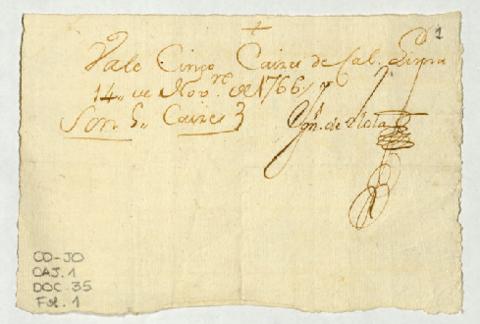 1
Vale Cinco Caizes de Cal. Lima
14,, de Nov.re de 1766
Son 5,, Caizes
de
CO-JO
CAJ. 1
DOC. 35
Fol. 1